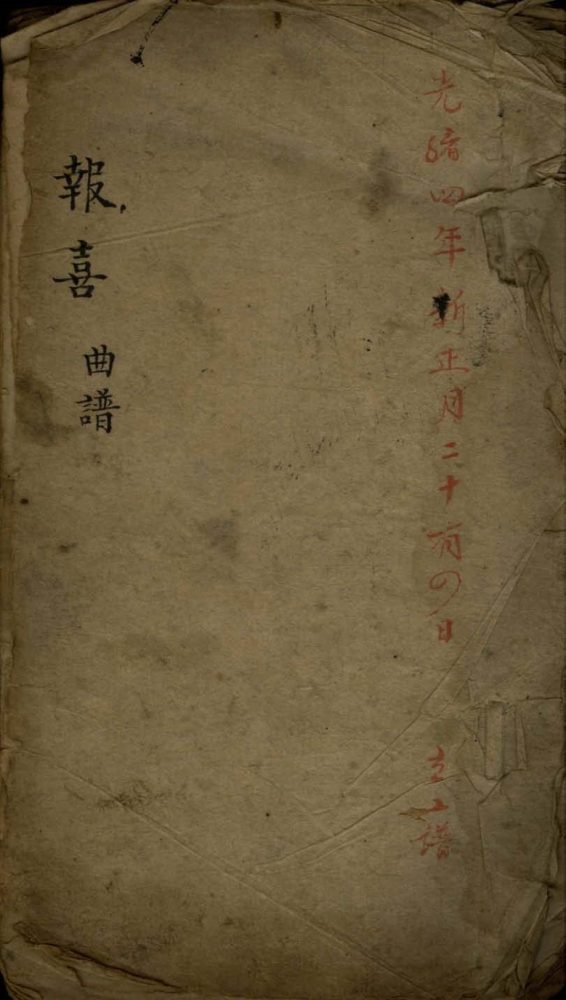 光緒四年新正月二十有四日 立工譜
報喜曲譜